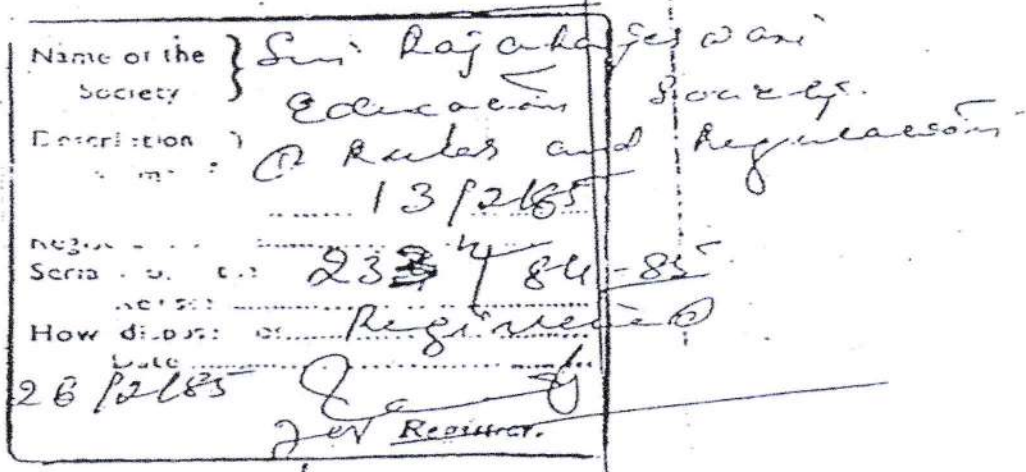 Name of the } Sri Rajarajeswari
Society } Education Society.
Description } ① Rules and Regulations
13/2/85
Serial 84-85
How dispos of Registered
Date
26/2/85
for Registrar.